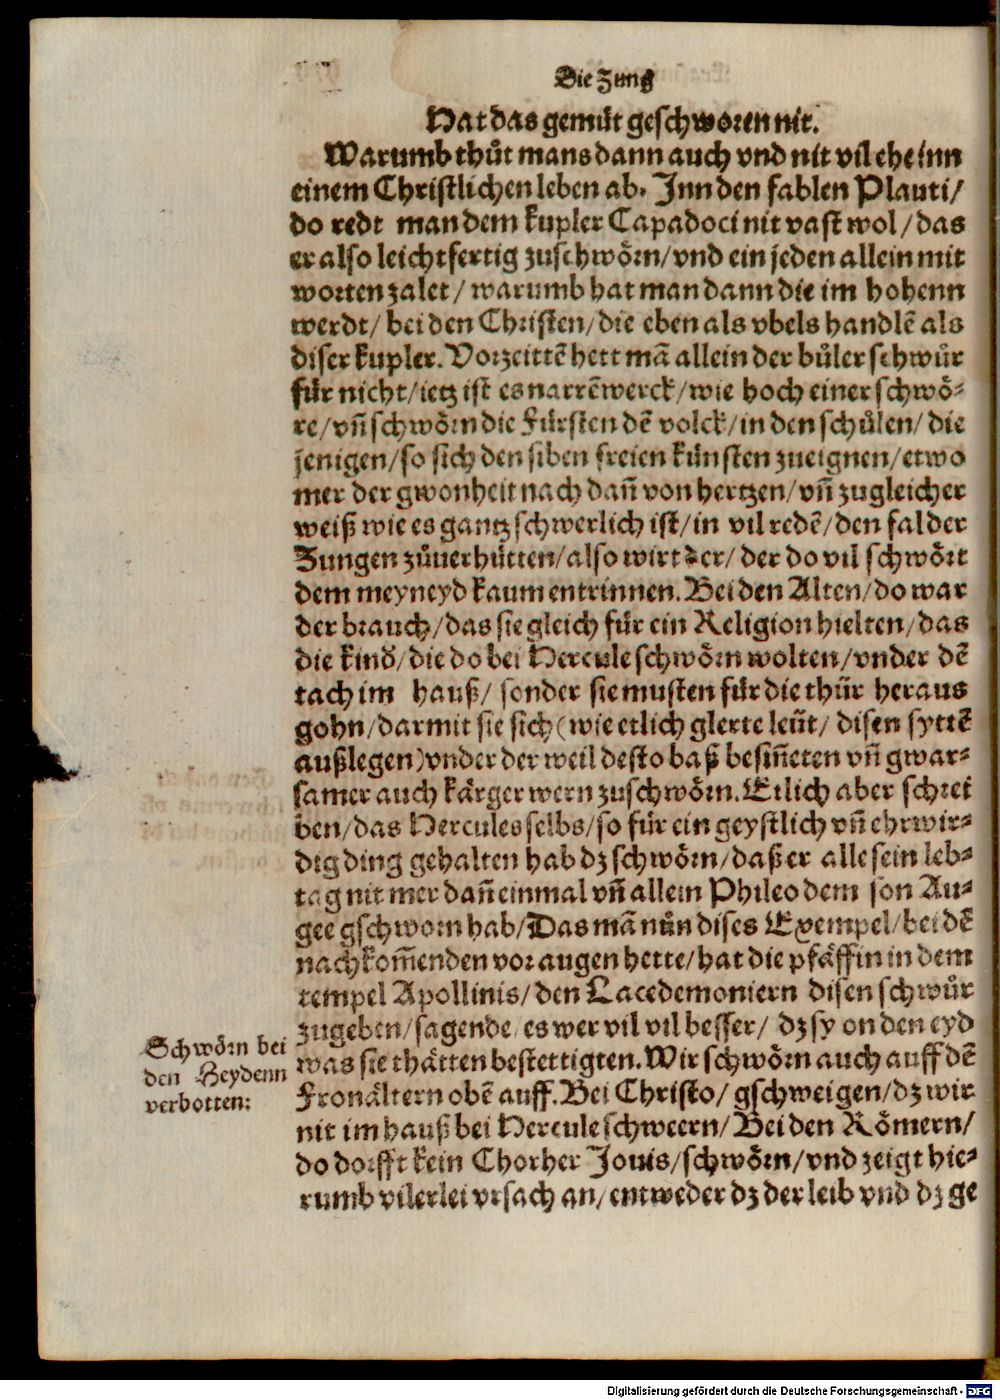 Die Zung
Hat das gemüt geschworen nit.
Warumb thůt mans dann auch vnd nit vil ehe inn
einem Christlichen leben ab. Jnn den fablen Plauti/
do redt man dem kupler Capadoci nit vast wol/das
er also leichtfertig zuschwörn/vnd ein jeden allein mit
worten zalet/ warumb hat man dann die im hohenn
werdt/ bei den Christen/die eben als vbels handlē als
diser kupler. Vorzeittē hett mā allein der bůler schwůr
für nicht/ietz ist es narrēwerck/wie hoch einer schwö⸗
re/vñ schwörn die Fürsten dē volck/in den schůlen/die
jenigen/so sich den siben freien künsten zueignen/etwo
mer der gwonheit nach dañ von hertzen/vñ zugleicher
weiß wie es gantz schwerlich ist/in vil redē/den fal der
Zungen zůuerhütten/also wirt der/ der do vil schwört
dem meyneyd kaum entrinnen. Bei den Alten/do war
der brauch/das sie gleich für ein Religion hielten/das
die kind/die do bei Hercule schwörn wolten/vnder dē
tach im hauß/ sonder sie musten für die thür heraus
gohn/darmit sie sich (wie etlich glerte leüt/ disen syttē
außlegen) vnder der weil desto baß besiñeten vñ gwar⸗
samer auch kärger wern zuschwörn. Etlich aber schrei
ben/das Hercules selbs/so für ein geystlich vñ ehrwir⸗
dig ding gehalten hab dz schwörn/daß er alle sein leb⸗
tag nit mer dañ einmal vñ allein Phileo dem son Au⸗
gee gschworn hab/Das mā nůn dises Exempel/bei dē
nachkom̄enden vor augen hette/hat die pfäffin in dem
tempel Apollinis/den Lacedemoniern disen schwůr
zugeben/sagende/es wer vil vil besser/ dz sy on den eyd
was sie thätten bestettigten. Wir schwörn auch auff dē
Fronältern obē auff. Bei Christo/ gschweigen/dz wir
nit im hauß bei Hercule schweern/ Bei den Römern/
do dorfft kein Chorher Jouis/schwörn/vnd zeigt hie⸗
rumb vilerlei vrsach an/entweder dz der leib vnd dz ge
Schwörn bei
den Heydenn
verbotten:
Digitalisierung gefördert durch die Deutsche Forschungsgemeinschaft - DFG